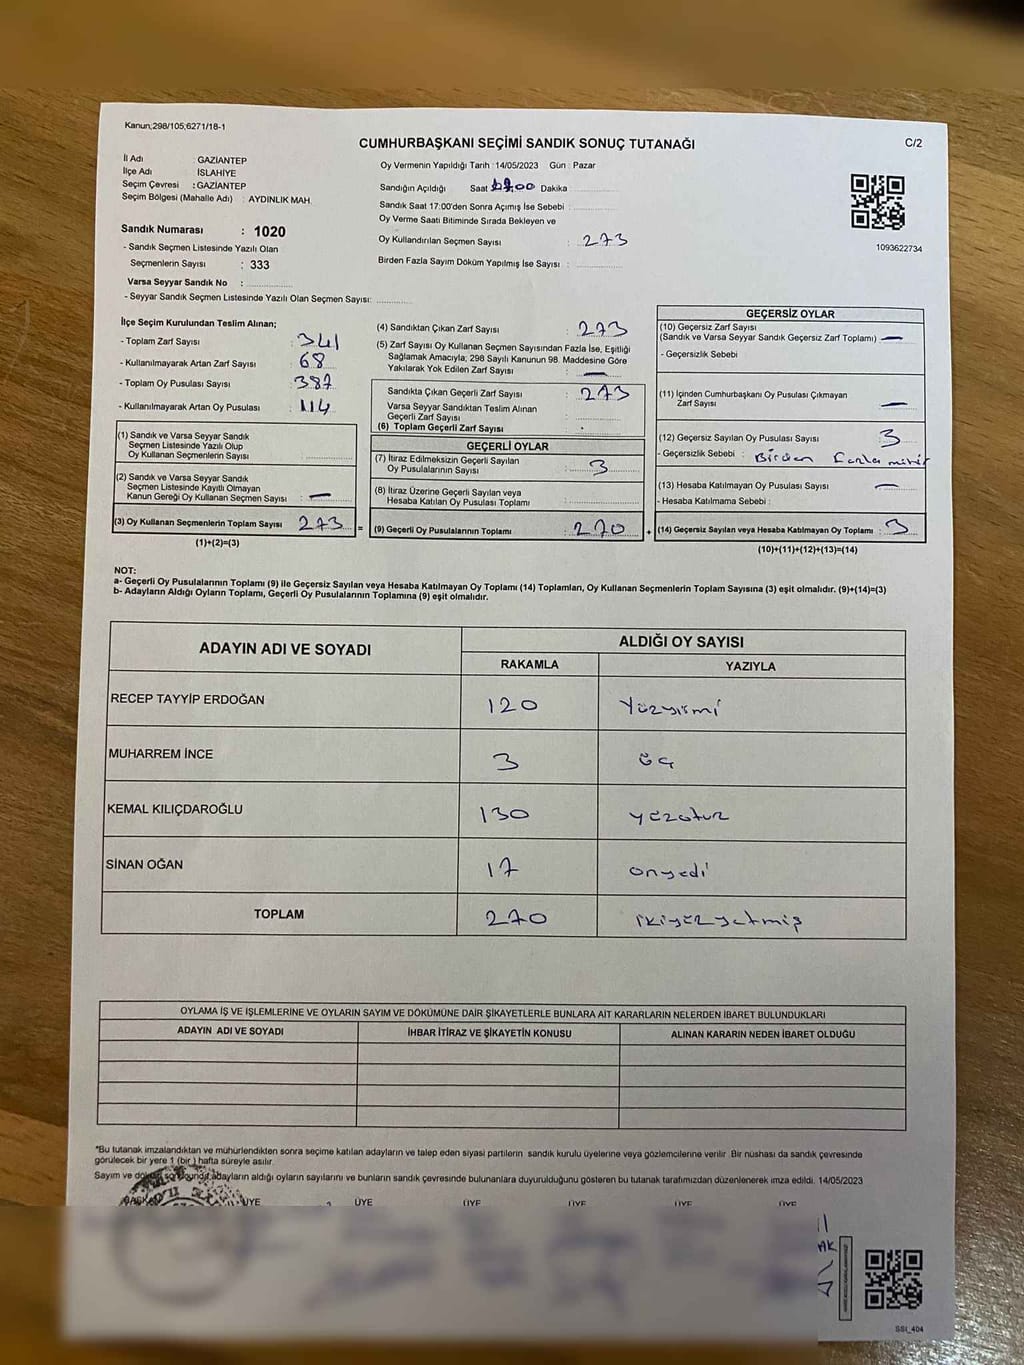 Kanun;298/105;6271/18-1
CUMHURBAŞKANI SEÇİMİ SANDIK SONUÇ TUTANAĞI
C/2
İl Adı : GAZİANTEP
İlçe Adı : İSLAHİYE
Seçim Çevresi : GAZİANTEP
Seçim Bölgesi (Mahalle Adı) : AYDINLIK MAH.
Oy Vermenin Yapıldığı Tarih : 14/05/2023 Gün : Pazar
Sandığın Açıldığı Saat Dakika :
Sandık Saat 17:00'den Sonra Açımış İse Sebebi :
Oy Verme Saati Bitiminde Sırada Bekleyen ve
Oy Kullandırılan Seçmen Sayısı : 273
Birden Fazla Sayım Döküm Yapılmış İse Sayısı :
1093622734
Sandık Numarası : 1020
- Sandık Seçmen Listesinde Yazılı Olan
Seçmenlerin Sayısı : 333
Varsa Seyyar Sandık No :
- Seyyar Sandık Seçmen Listesinde Yazılı Olan Seçmen Sayısı:
İlçe Seçim Kurulundan Teslim Alınan;
- Toplam Zarf Sayısı : 341
- Kullanılmayarak Artan Zarf Sayısı : 68
- Toplam Oy Pusulası Sayısı : 387
- Kullanılmayarak Artan Oy Pusulası : 114
(1) Sandık ve Varsa Seyyar Sandık
Seçmen Listesinde Yazılı Olup
Oy Kullanan Seçmenlerin Sayısı :
(2) Sandık ve Varsa Seyyar Sandık
Seçmen Listesinde Kayıtlı Olmayan
Kanun Gereği Oy Kullanan Seçmen Sayısı : —
(3) Oy Kullanan Seçmenlerin Toplam Sayısı : 273 =
(1)+(2)=(3)
(4) Sandıktan Çıkan Zarf Sayısı : 273
(5) Zarf Sayısı Oy Kullanan Seçmen Sayısından Fazla İse, Eşitliği
Sağlamak Amacıyla; 298 Sayılı Kanunun 98. Maddesine Göre
Yakılarak Yok Edilen Zarf Sayısı : —
Sandıkta Çıkan Geçerli Zarf Sayısı : 273
Varsa Seyyar Sandıktan Teslim Alınan
Geçerli Zarf Sayısı :
(6) Toplam Geçerli Zarf Sayısı :
GEÇERLİ OYLAR
(7) İtiraz Edilmeksizin Geçerli Sayılan
Oy Pusulalarının Sayısı : 3
(8) İtiraz Üzerine Geçerli Sayılan veya
Hesaba Katılan Oy Pusulası Toplamı :
(9) Geçerli Oy Pusulalarının Toplamı : 270 +
GEÇERSİZ OYLAR
(10) Geçersiz Zarf Sayısı
(Sandık ve Varsa Seyyar Sandık Geçersiz Zarf Toplamı) : —
- Geçersizlik Sebebi
(11) İçinden Cumhurbaşkanı Oy Pusulası Çıkmayan
Zarf Sayısı : —
(12) Geçersiz Sayılan Oy Pusulası Sayısı : 3
- Geçersizlik Sebebi : Birden Fazla mühür
(13) Hesaba Katılmayan Oy Pusulası Sayısı : —
- Hesaba Katılmama Sebebi :
(14) Geçersiz Sayılan veya Hesaba Katılmayan Oy Toplamı : 3
(10)+(11)+(12)+(13)=(14)
NOT:
a- Geçerli Oy Pusulalarının Toplamı (9) ile Geçersiz Sayılan veya Hesaba Katılmayan Oy Toplamı (14) Toplamları, Oy Kullanan Seçmenlerin Toplam Sayısına (3) eşit olmalıdır. (9)+(14)=(3)
b- Adayların Aldığı Oyların Toplamı, Geçerli Oy Pusulalarının Toplamına (9) eşit olmalıdır.
ADAYIN ADI VE SOYADI
ALDIĞI OY SAYISI
RAKAMLA YAZIYLA
RECEP TAYYİP ERDOĞAN 120 Yüzyirmi
MUHARREM İNCE 3 üç
KEMAL KILIÇDAROĞLU 130 yüzotuz
SİNAN OĞAN 17 onyedi
TOPLAM 270 ikiyüzyetmiş
OYLAMA İŞ VE İŞLEMLERİNE VE OYLARIN SAYIM VE DÖKÜMÜNE DAİR ŞİKAYETLERLE BUNLARA AİT KARARLARIN NELERDEN İBARET BULUNDUKLARI
ADAYIN ADI VE SOYADI İHBAR İTİRAZ VE ŞİKAYETİN KONUSU ALINAN KARARIN NEDEN İBARET OLDUĞU
*Bu tutanak imzalandıktan ve mühürlendikten sonra seçime katılan adayların ve talep eden siyasi partilerin sandık kurulu üyelerine veya gözlemcilerine verilir. Bir nüshası da sandık çevresinde
görülecek bir yere 1 (bir) hafta süreyle asılır.
Sayım ve döküm sonucunda adayların aldığı oyların sayılarını ve bunların sandık çevresinde bulunanlara duyurulduğunu gösteren bu tutanak tarafımızdan düzenlenerek imza edildi. 14/05/2023
BAŞKAN ÜYE ÜYE ÜYE ÜYE ÜYE ÜYE
SSİ_404